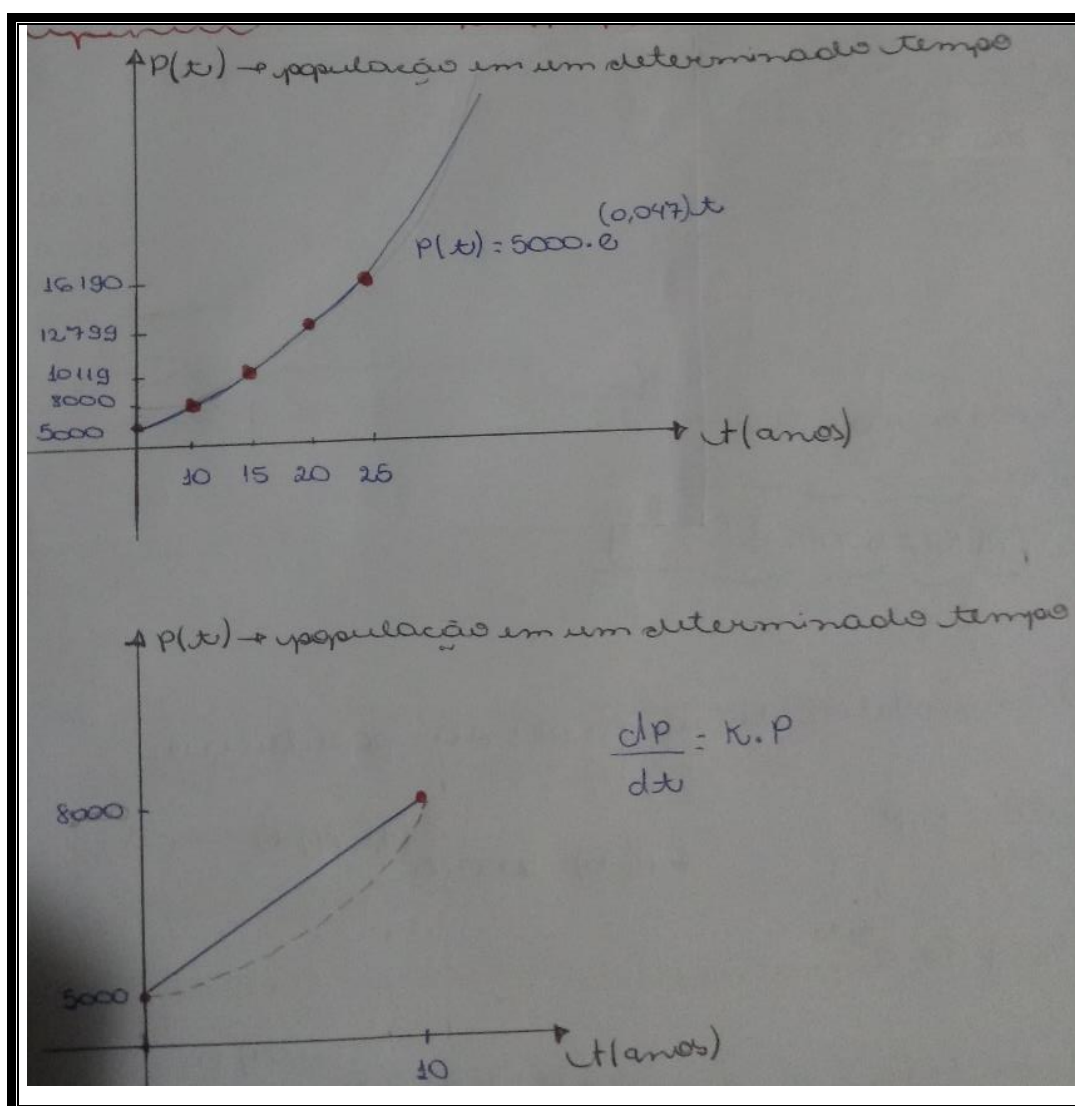 P(t) → população em um determinado tempo
P(t) = 5000.e^(0,047)t
16190
12799
10119
8000
5000
t(anos)
10 15 20 25
P(t) → população em um determinado tempo
dP/dt = K.P
8000
5000
t(anos)
10